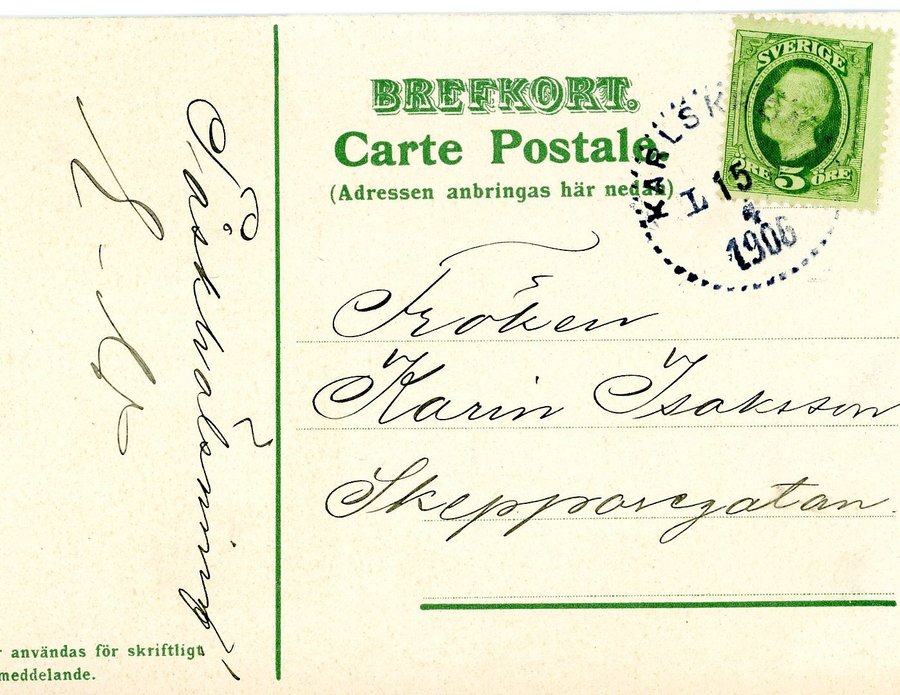 BREFKORT.
Carte Postale.
(Adressen anbringas här nedan)
SVERIGE
5 ÖRE
KARLSKRONA
L 15
4
1906
Fröken
Karin Isaksson
Skepparegatan.
Påskhälsning
användas för skriftligt
meddelande.